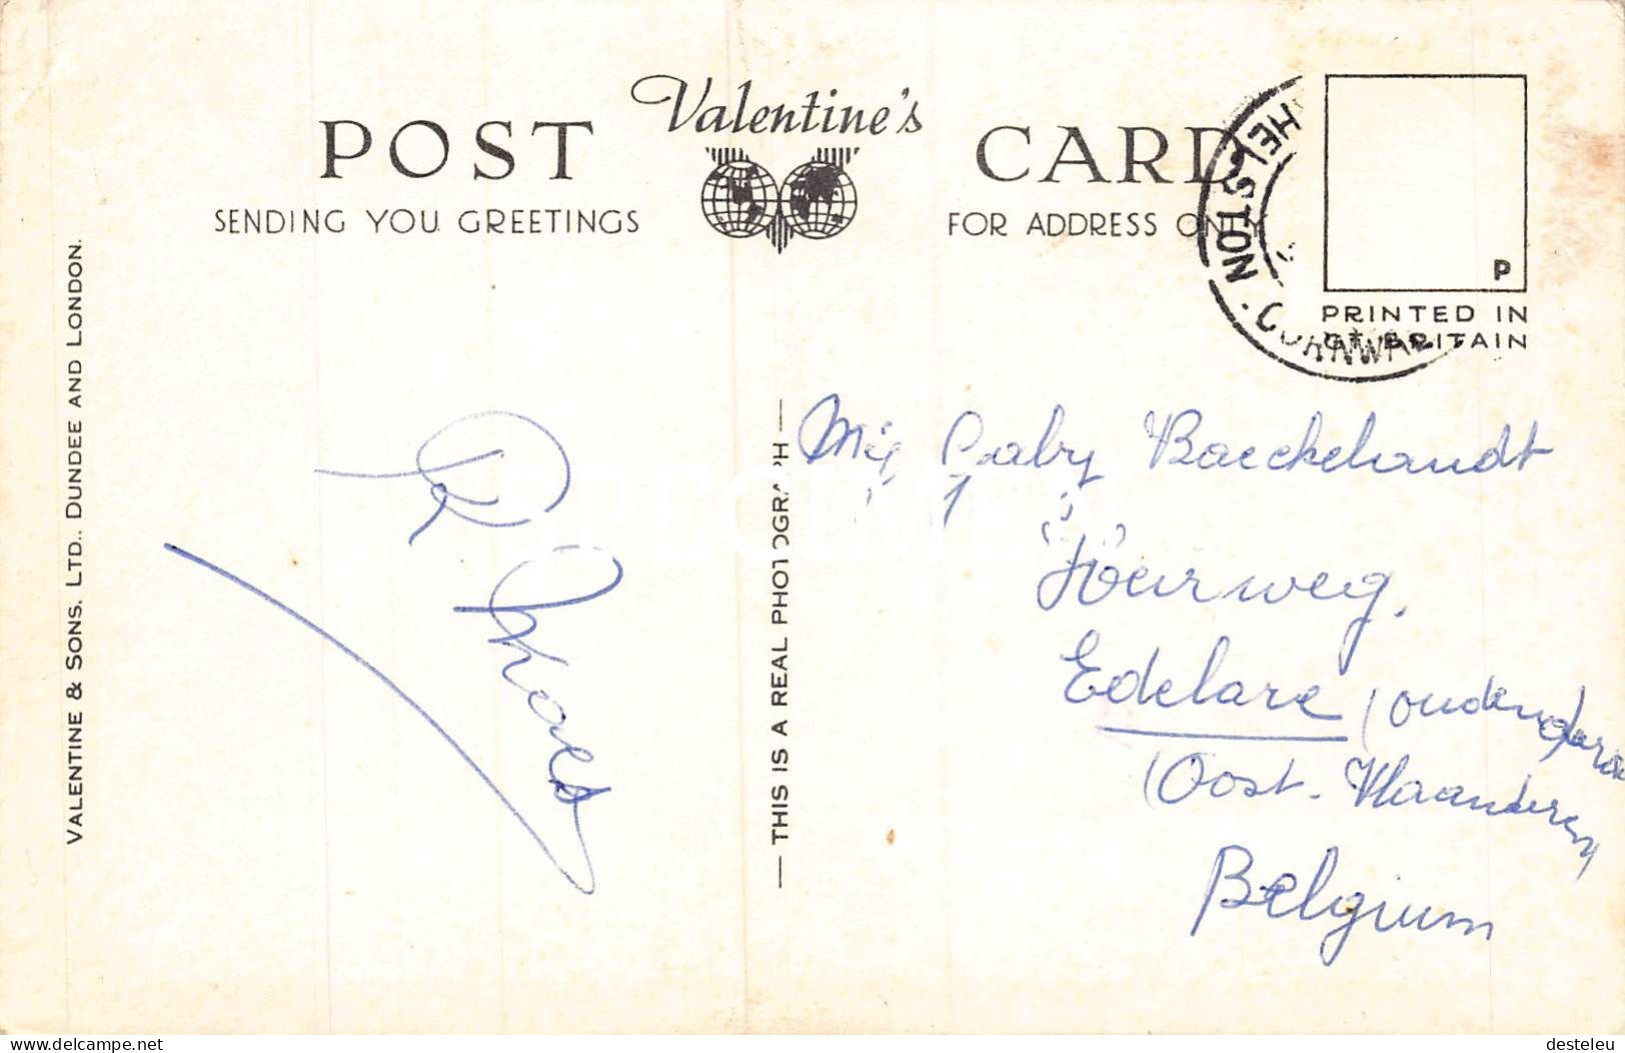 Valentine's
POST CARD
SENDING YOU GREETINGS
FOR ADDRESS ONLY
HELSTON
CORNWALL
P
PRINTED IN
GT. BRITAIN
VALENTINE & SONS. LTD., DUNDEE AND LONDON.
— THIS IS A REAL PHOTOGRAPH —
Gaby Baeckelandt
Edelare (oudenaarde
(Oost. Vlaanderen
Belgium
delcampe.net
desteleu